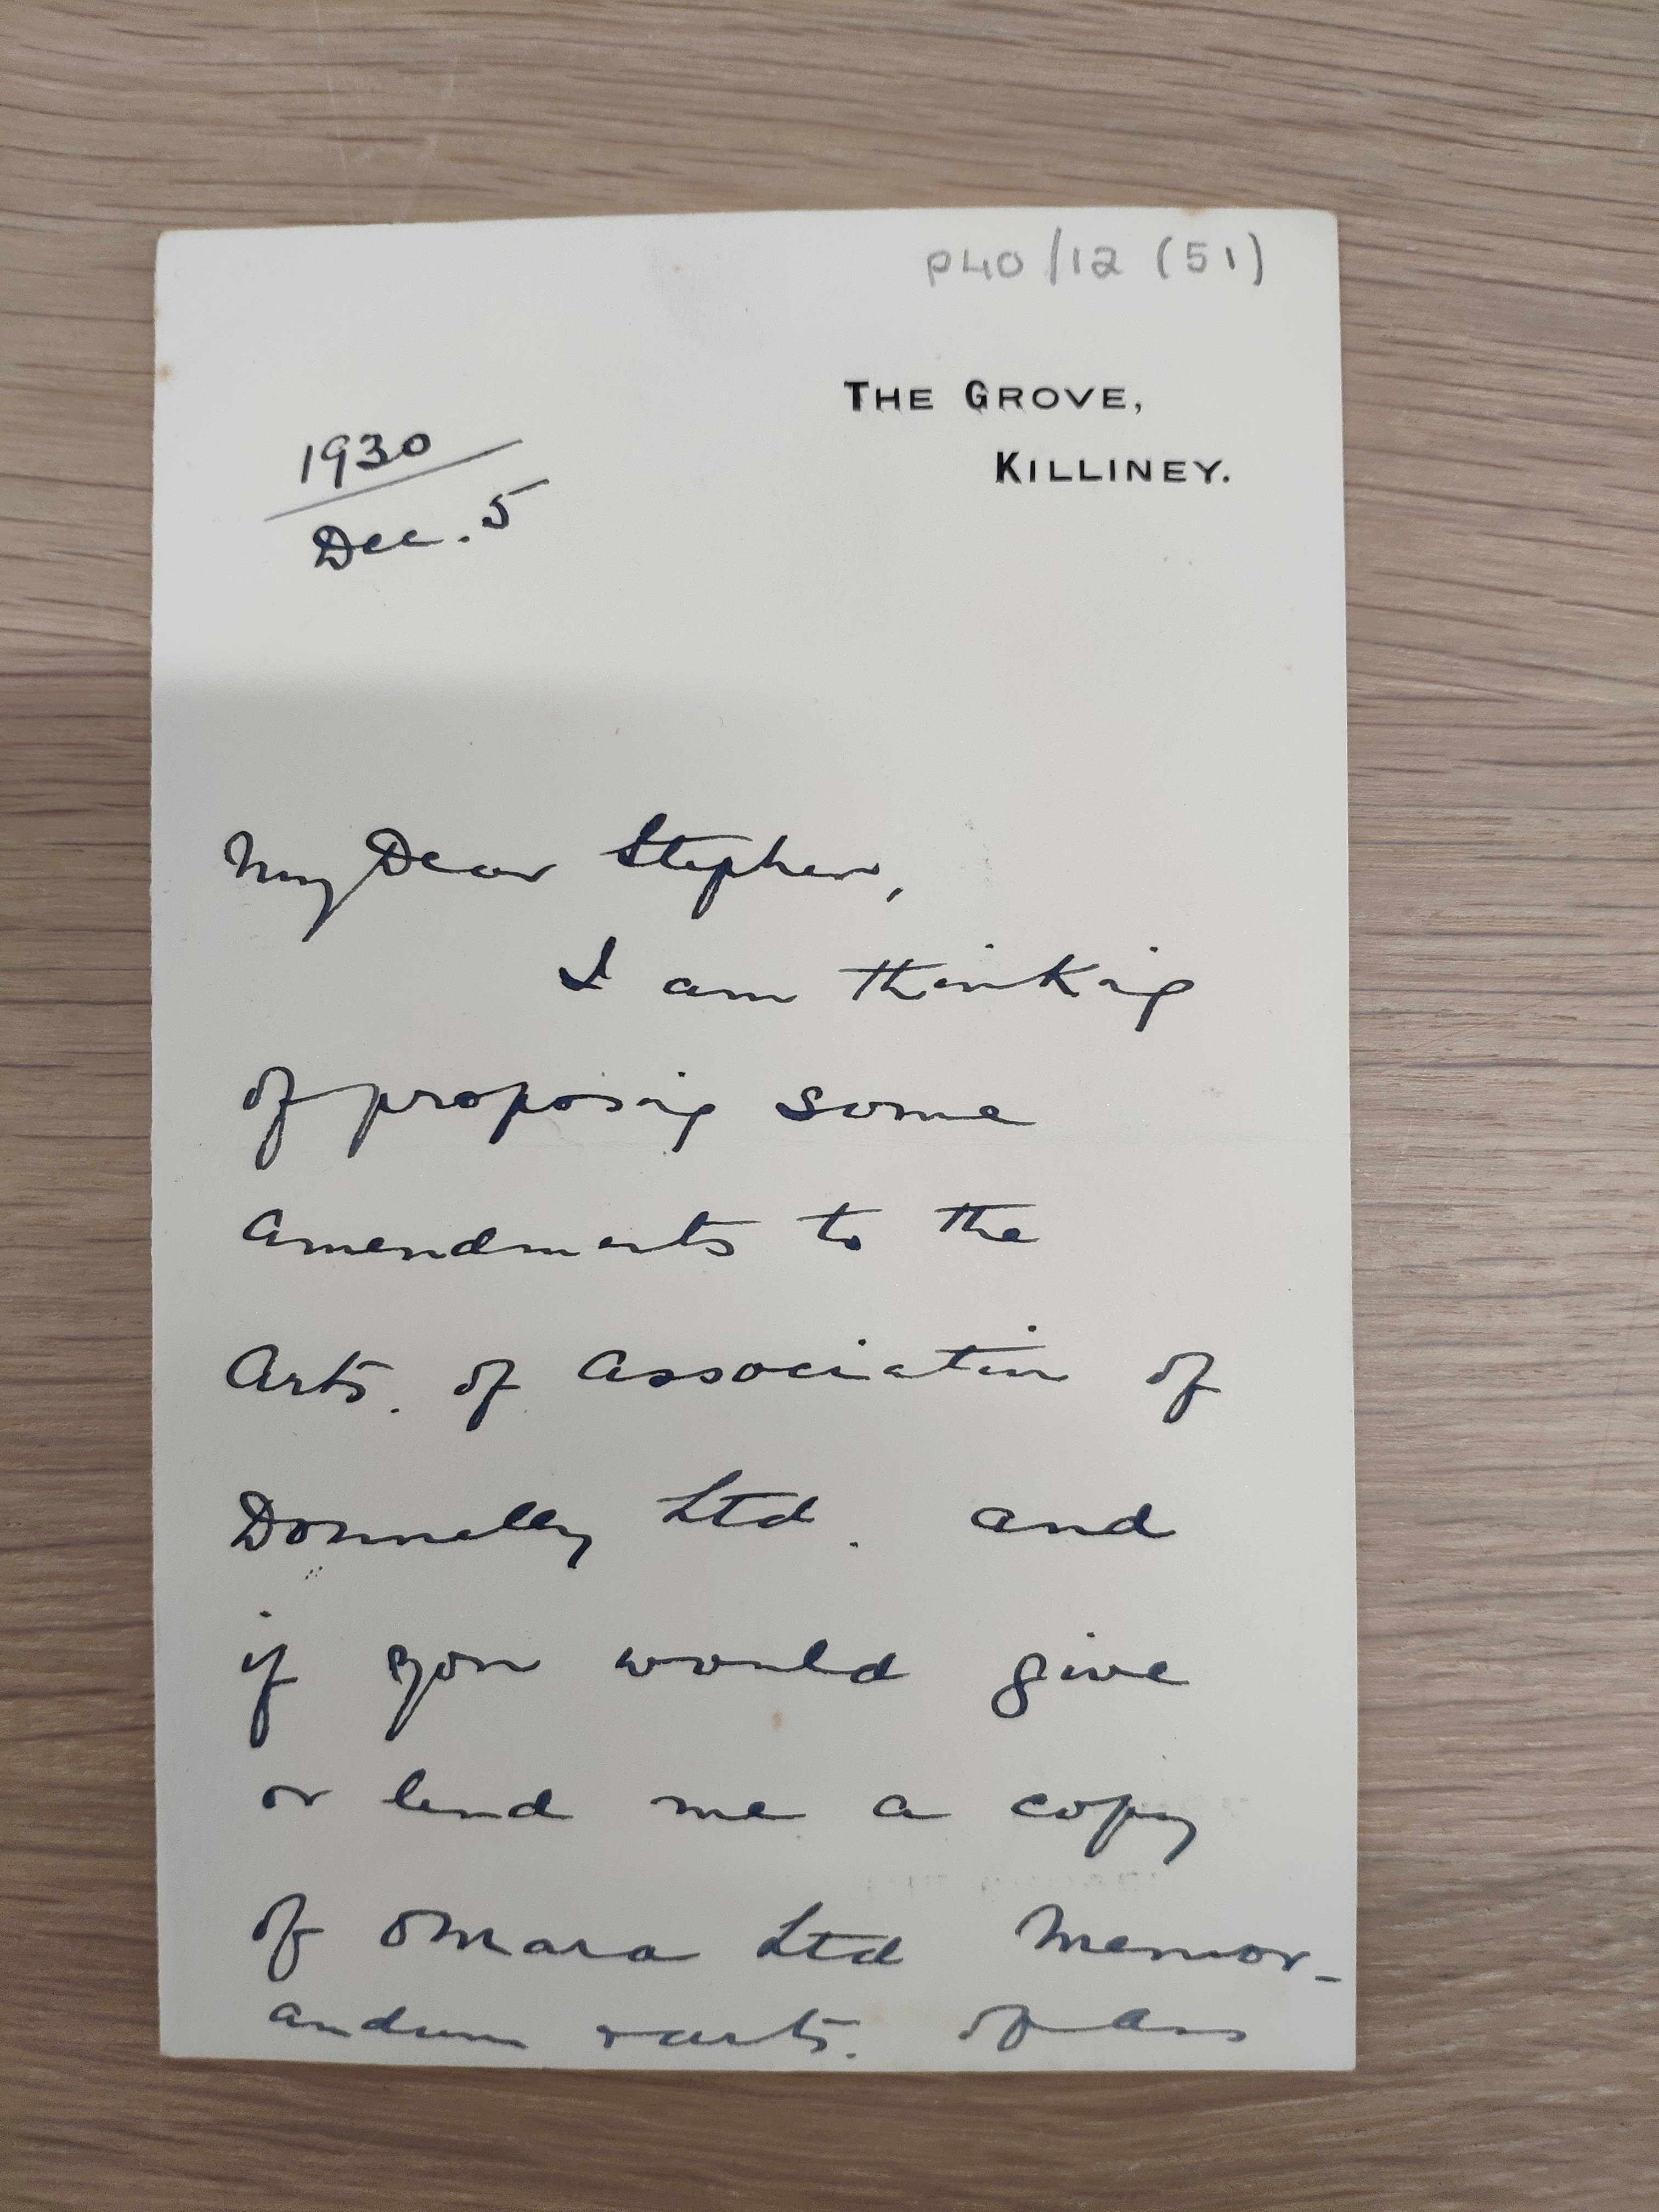 P40/12 (51)
THE GROVE,
KILLINEY.
1930
Dec. 5
My Dear Stephen,
I am thinking
of proposing some
Amendments to the
Arts. of Association of
Donnelly Ltd. and
if you would give
or lend me a copy
of OMara Ltd Memor-
andum & arts. of Ass